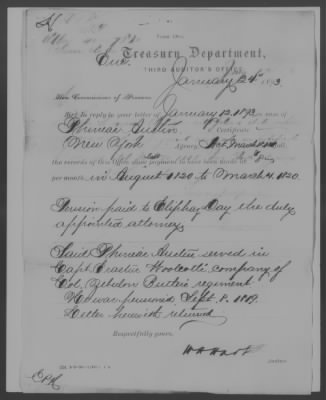 Treasury Department,
THIRD AUDITOR'S OFFICE,
Enc.
January 24th, 1893.
Hon. Commissioner of Pensions.
In reply to your letter of January 12, 1893, in case of
Phineas Austin
Certificate
New York Agency, Act March 18, 1818
the records of this office show last payment to have been made at $8
per month in August 1820 to March 4, 1820.
Pension paid to Eliphaz Day the duly
appointed attorney.
Said Phineas Austin served in
Capt. Erastus Woolcott's company of
Col. Zebulon Butler's regiment
He was pensioned Sept. 8, 1819.
Letter herewith returned
Respectfully yours,
W H Hart
Auditor.